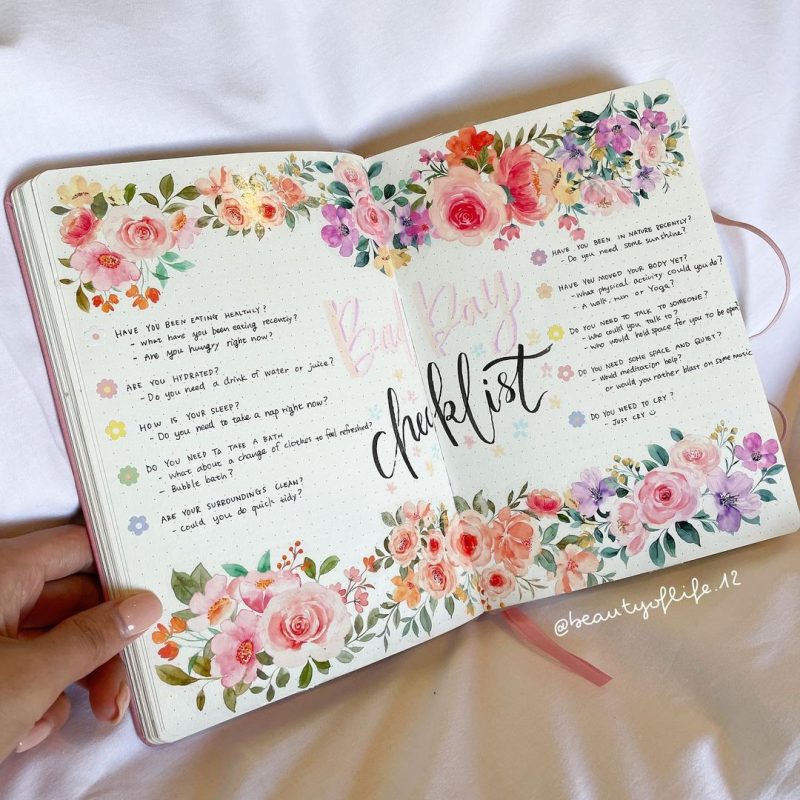 Bad Day
checklist
HAVE YOU BEEN EATING HEALTHLY?
- What have you been eating recently?
- Are you hungry right now?
ARE YOU HYDRATED?
- Do you need a drink of water or juice?
HOW IS YOUR SLEEP?
- Do you need to take a nap right now?
DO YOU NEED TO TAKE A BATH
- What about a change of clothes to feel refreshed?
- Bubble bath?
ARE YOUR SURROUNDINGS CLEAN?
- Could you do quick tidy?
HAVE YOU BEEN IN NATURE RECENTLY?
- Do you need some sunshine?
HAVE YOU MOVED YOUR BODY YET?
- What physical activity could you do?
- A walk, run or Yoga?
DO YOU NEED TO TALK TO SOMEONE?
- Who could you talk to?
- Who would hold space for you to be open?
DO YOU NEED SOME SPACE AND QUIET?
- Would meditation help?
or would you rather blast on some music
DO YOU NEED TO CRY?
- JUST CRY
@beautyoflife.12